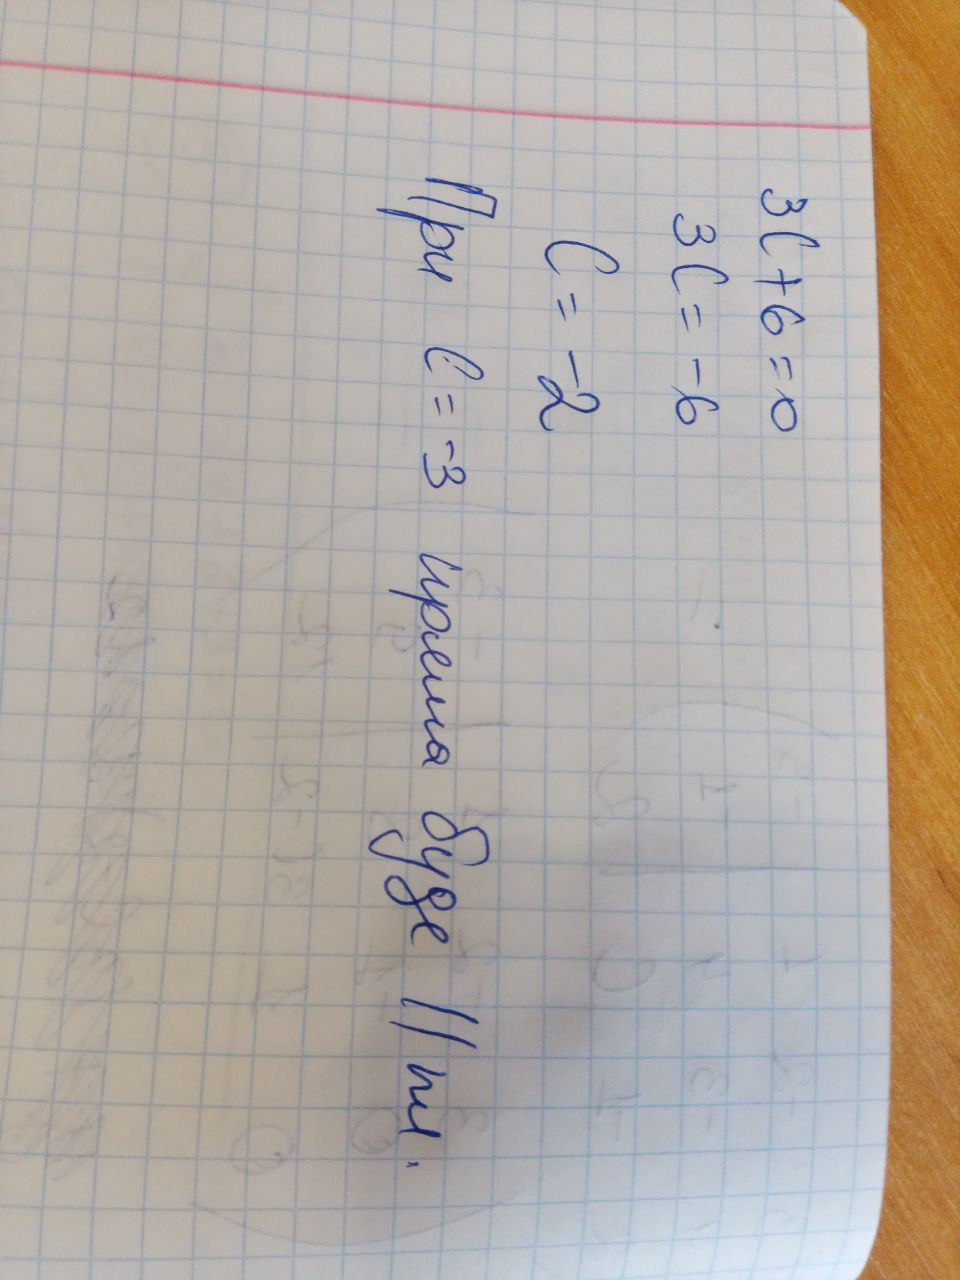 3C+6=0
3C=-6
C=-2
При C=-3 пряма буде || пл.